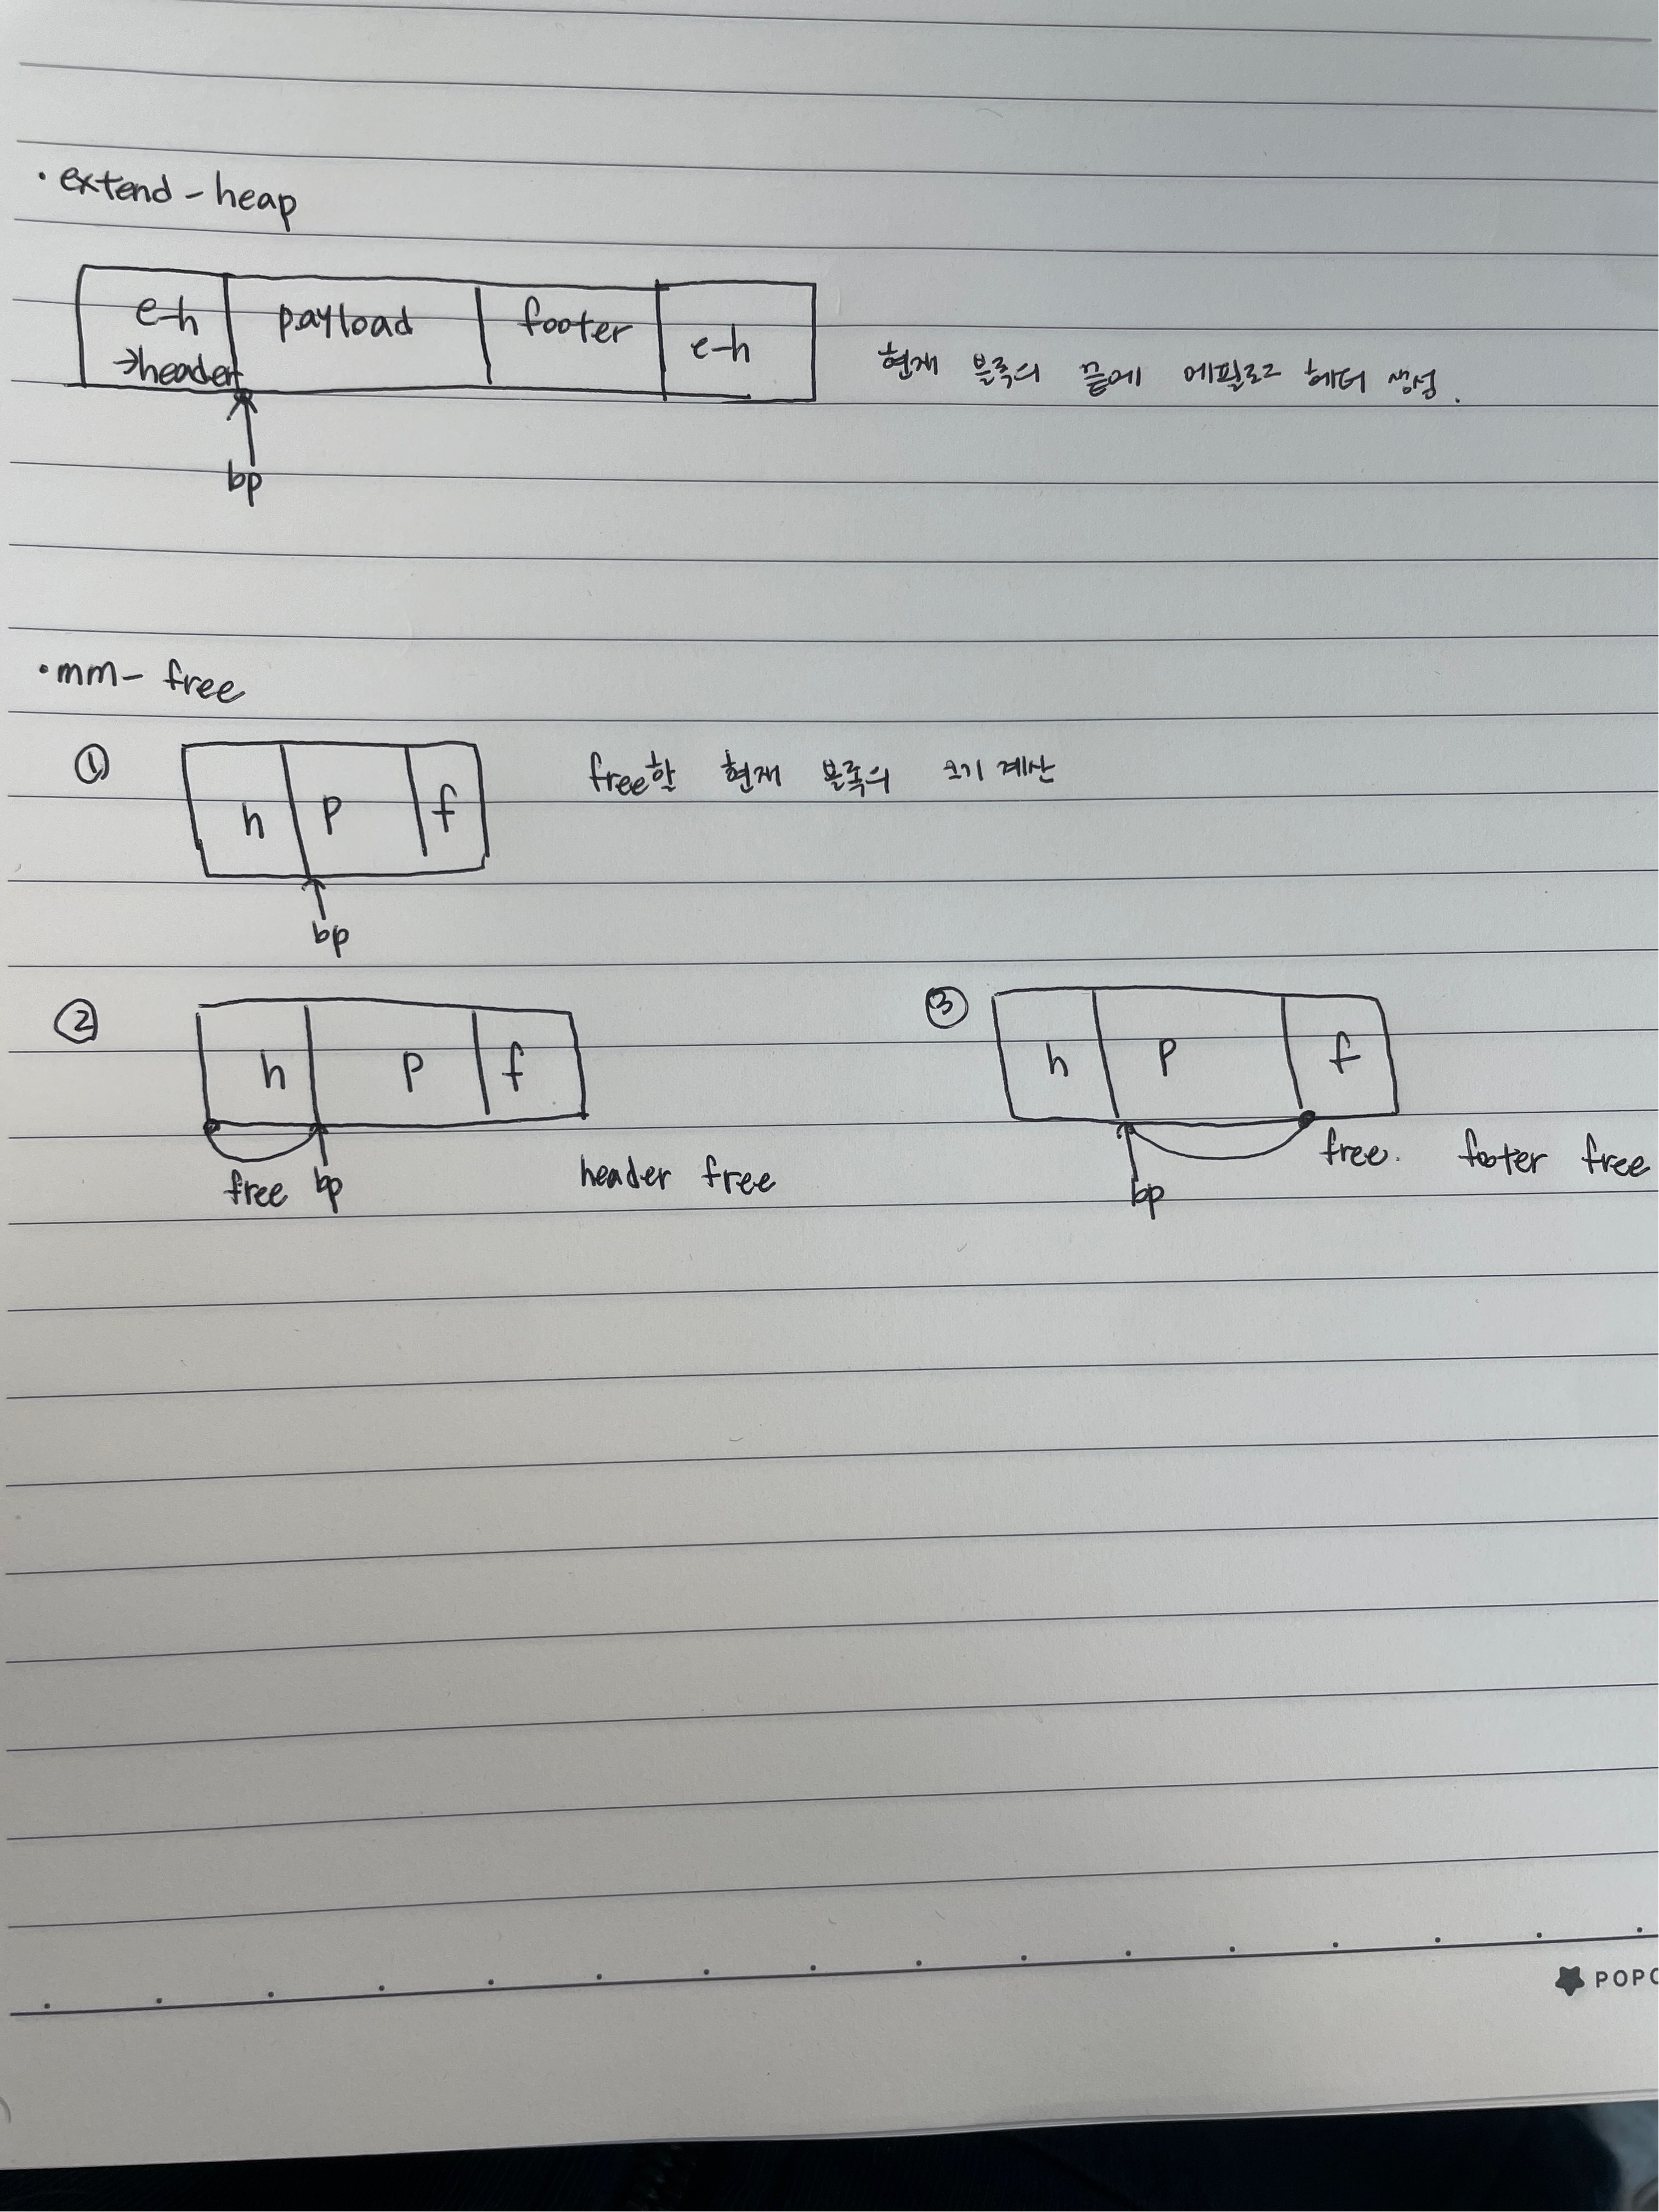 • extend - heap
e-h → header payload footer e-h
현재 블록의 끝에 에필로그 헤더 생성.
bp
• mm - free
① h p f free할 현재 블록의 크기 계산
bp
② h p f
free bp header free
③ h p f
bp free. footer free
POPC